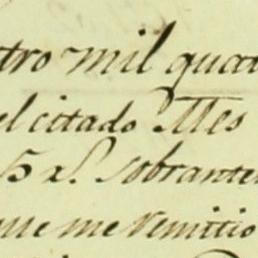 tro mil quat
el citado Mes
5 xs. sobrante
ue me remitio